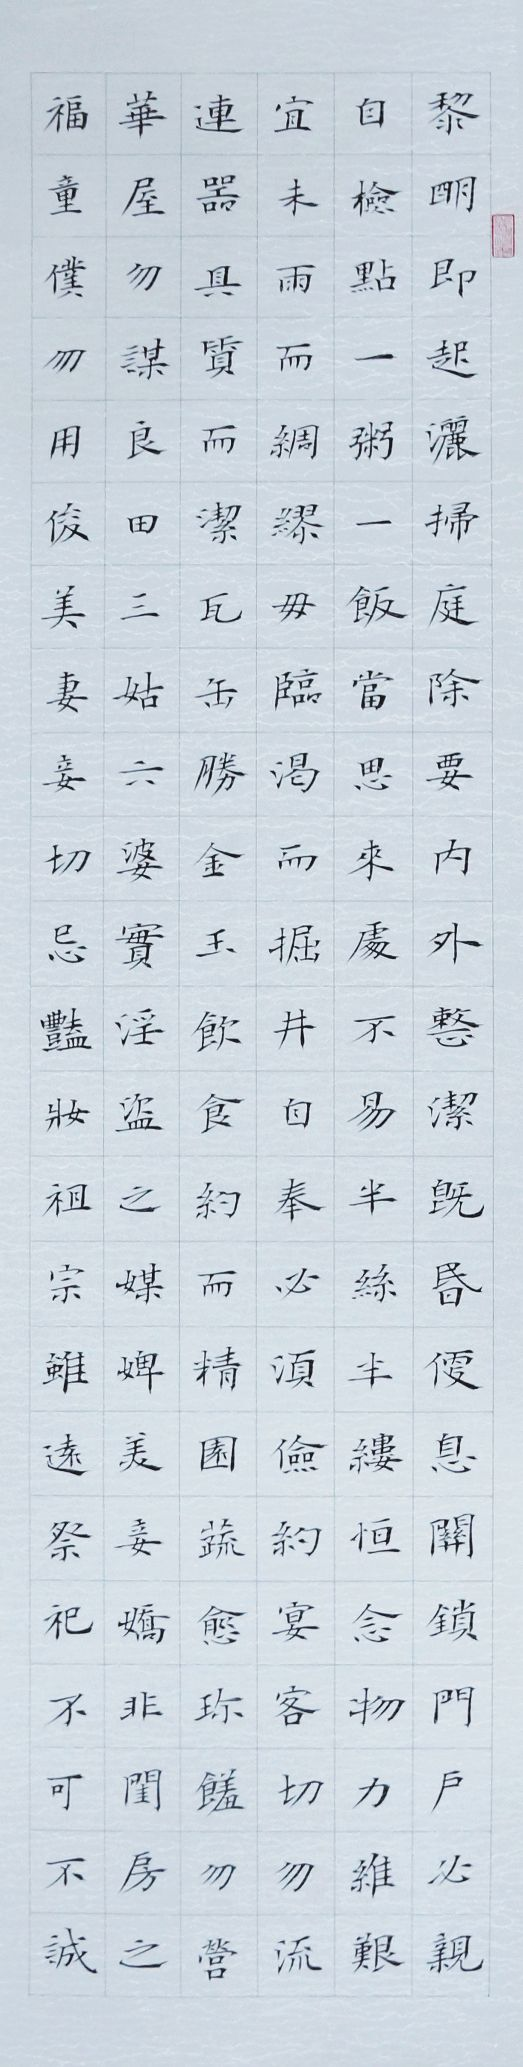 黎明即起灑掃庭除要內外整潔既昏便息關鎖門戶必親
自檢點一粥一飯當思來處不易半絲半縷恒念物力維艱
宜未雨而綢繆毋臨渴而掘井自奉必須儉約宴客切勿流
連器具質而潔瓦缶勝金玉飲食約而精園蔬愈珍饈勿營
華屋勿謀良田三姑六婆實淫盜之媒婢美妾嬌非閨房之
福童僕勿用俊美妻妾切忌豔妝祖宗雖遠祭祀不可不誠